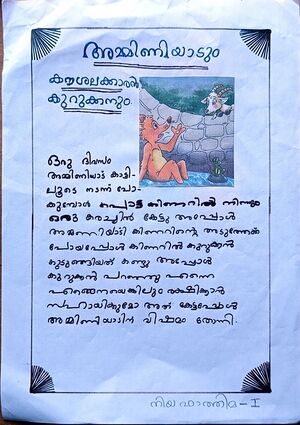 അമ്മിണിയാടും
കൗശലക്കാരൻ
കുറുക്കനും
ഒരു ദിവസം
അമ്മിണിയാട് കാട്ടി-
ലൂടെ നടന്ന് പോ-
കുമ്പോൾ പൊട്ട കിണറിൽ നിന്നും
ഒരു കരച്ചിൽ കേട്ടു അപ്പോൾ
അമ്മണിയാട് കിണറിന്റെ അടുത്തേക്ക്
പോയപ്പോൾ കിണറിൽ കുറുക്കൻ
കുടുങ്ങിയത് കണ്ടു അപ്പോൾ
കുറുക്കൻ പറഞ്ഞു എന്നെ
എങ്ങെനെയെങ്കിലും രക്ഷിക്കാൻ
സഹായിക്കുമോ അത് കേട്ടപ്പോൾ
അമ്മിണിയാടിന് വിഷമം തോന്നി.
നിയ ഫാത്തിമ - I